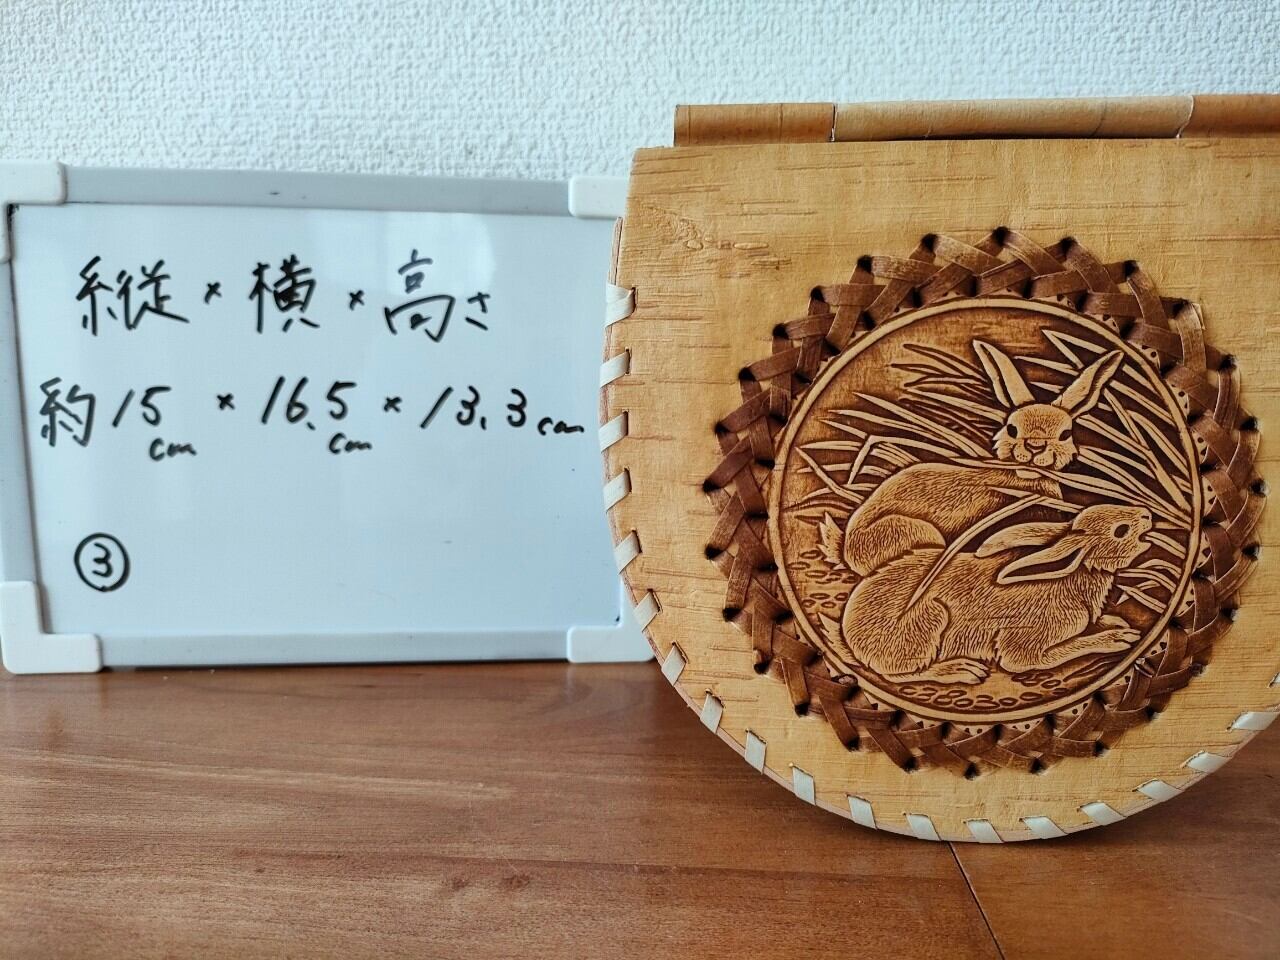 縦×横×高さ
約15cm×16.5cm×13.3cm
③